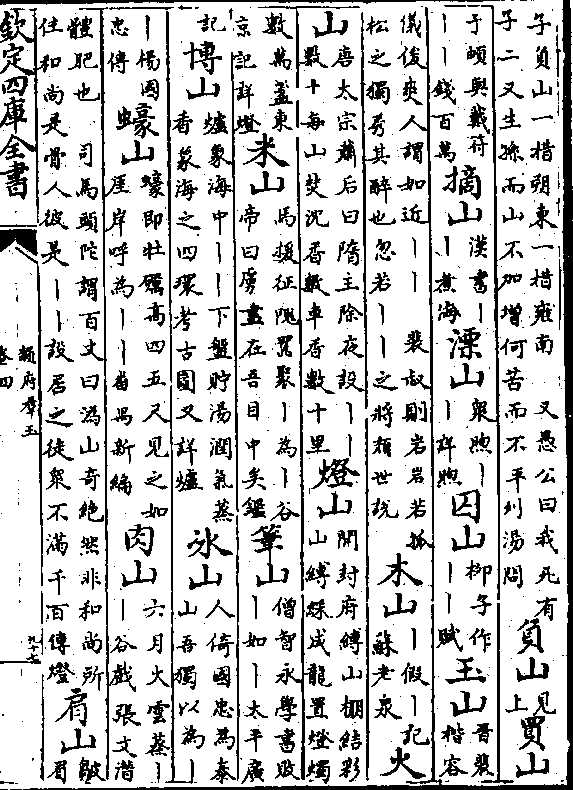 子負山一措朔東一措雍南　又愚公曰我死有
子二又生孫而山不加增何苦而不平列湯問
負山見上
買山
于頔與戴符
｜｜錢百萬
摘山漢書｜
｜煮海
漂山衆煦｜
｜詳煦
囚山柳子作
｜｜賦
玉山晉裴
楷容
儀俊爽人謂如近｜｜　裴叔則岩岩若孤
松之獨秀其醉也忽若｜｜之將頽世説
木山｜假｜記
蘇老泉
火
山唐太宗蕭后曰隋主除夜設｜｜
數十每山焚沉香數車香數十里
燈山開封府縛山棚結彩
山縛綵成龍置燈燭
數萬盞東
京記詳燈
米山馬援征隗囂聚｜為｜谷
帝曰虜盡在吾目中矣鑑
筆山僧智永學書敗
｜如｜太平廣
記
博山爐象海中｜｜下盤貯湯潤氣蒸
香象海之四環考古圖又詳爐
氷山人倚國忠為泰
山吾獨以為｜
｜楊國
忠傳
蠔山蠔即牡蠣高四五尺見之如
崖岸呼為｜｜番禺新編
肉山六月火雲蒸｜
｜谷戲張文潛
體肥也　司馬頭陀謂百丈曰溈山奇絶然非和尚所
住和尚是骨人彼是｜｜設居之徒衆不滿千百傳燈
肩山皺
眉
欽定四庫全書
韻府羣玉
卷四
九十七